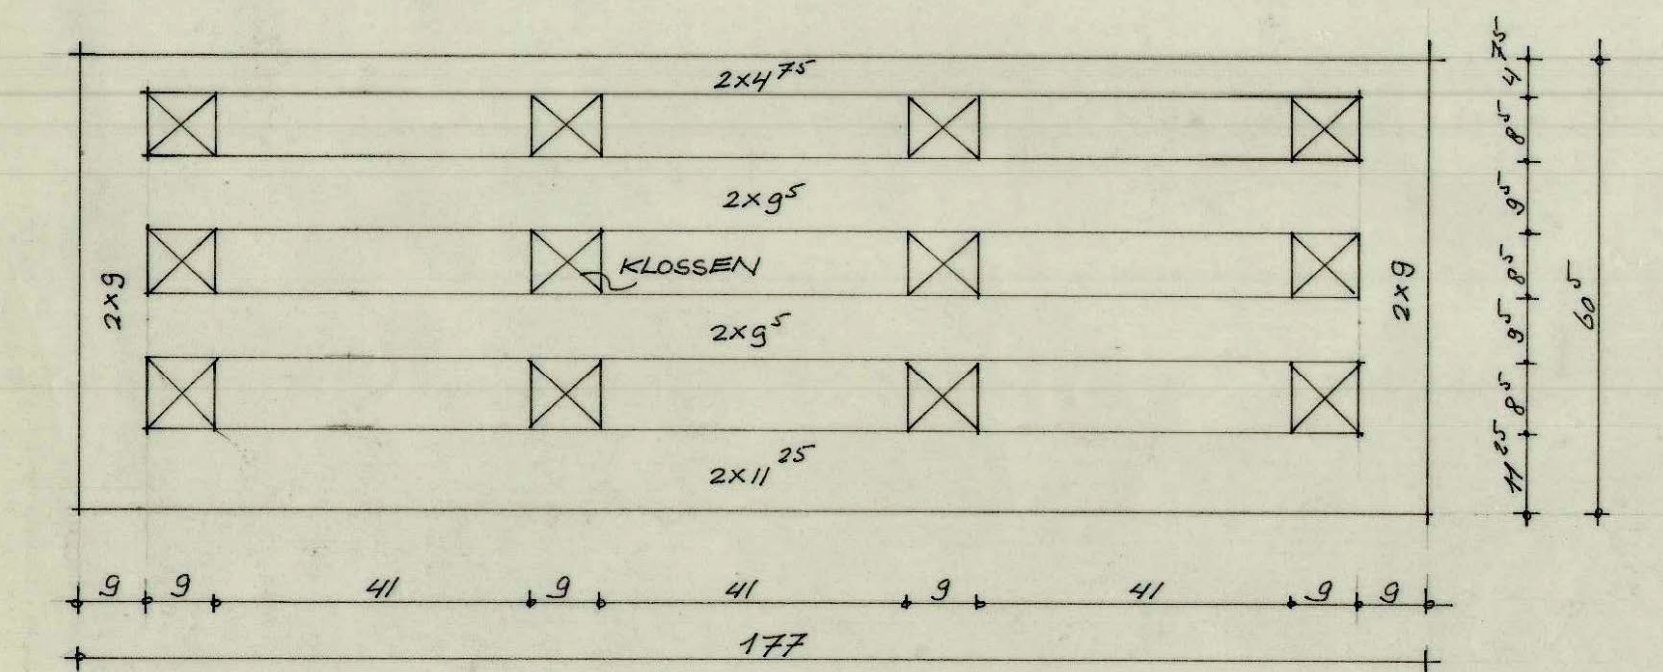 2x4⁷⁵
2x9⁵
KLOSSEN
2x9⁵
2x11²⁵
2x9
2x9
4⁷⁵
8⁵
9⁵
8⁵
9⁵
8⁵
11²⁵
60⁵
9 9 41 9 41 9 41 9 9
177